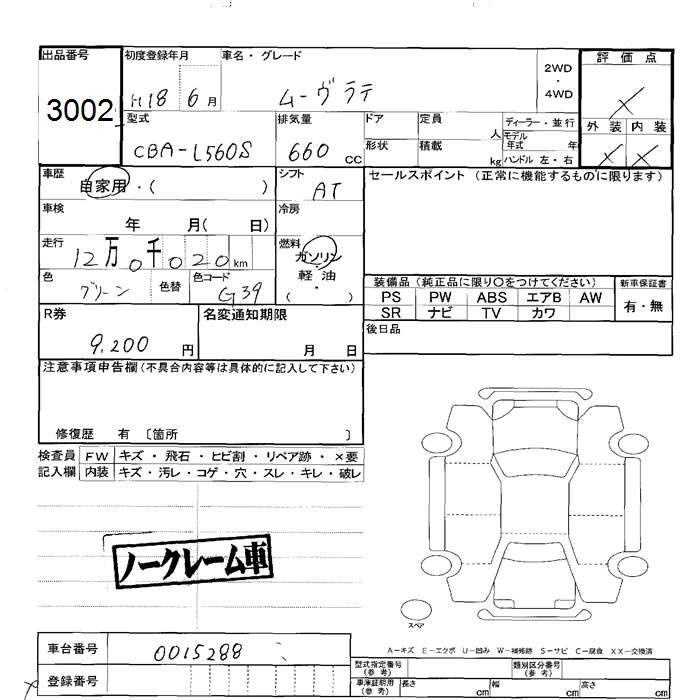 出品番号 初度登録年月 車名・グレード 評価点
3002 H18 6月 ムーヴラテ 2WD・4WD ×
型式 排気量 ドア 定員 人 ディーラー・並行 外装 内装
CBA-L560S 660cc 形状 積載 kg モデル年式 年 ハンドル 左・右 × ×
車歴 シフト セールスポイント (正常に機能するものに限ります)
自家用・( ) AT
車検 年 月( 日) 冷房
走行 12万0千020km 燃料 ガソリン 軽・油 ( )
色 グリーン 色替 色コード G39
装備品 (純正品に限り○をつけてください) 新車保証書
PS PW ABS エアB AW 有・無
SR ナビ TV カワ
R券 名変通知期限 後日品
9,200円 月 日
注意事項申告欄(不具合内容等は具体的に記入して下さい)
修復歴 有 〔箇所 〕
検査員 FW キズ・飛石・ヒビ割・リペア跡・×要
記入欄 内装 キズ・汚レ・コゲ・穴・スレ・キレ・破レ
ノークレーム車
スペア
A-キズ E-エクボ U-凹み W-補修跡 S-サビ C-腐食 XX-交換済
車台番号 0015288 型式指定番号(参考) 類別区分番号(参考)
登録番号 車庫証明用(参考) 長さ cm 幅 cm 高さ cm